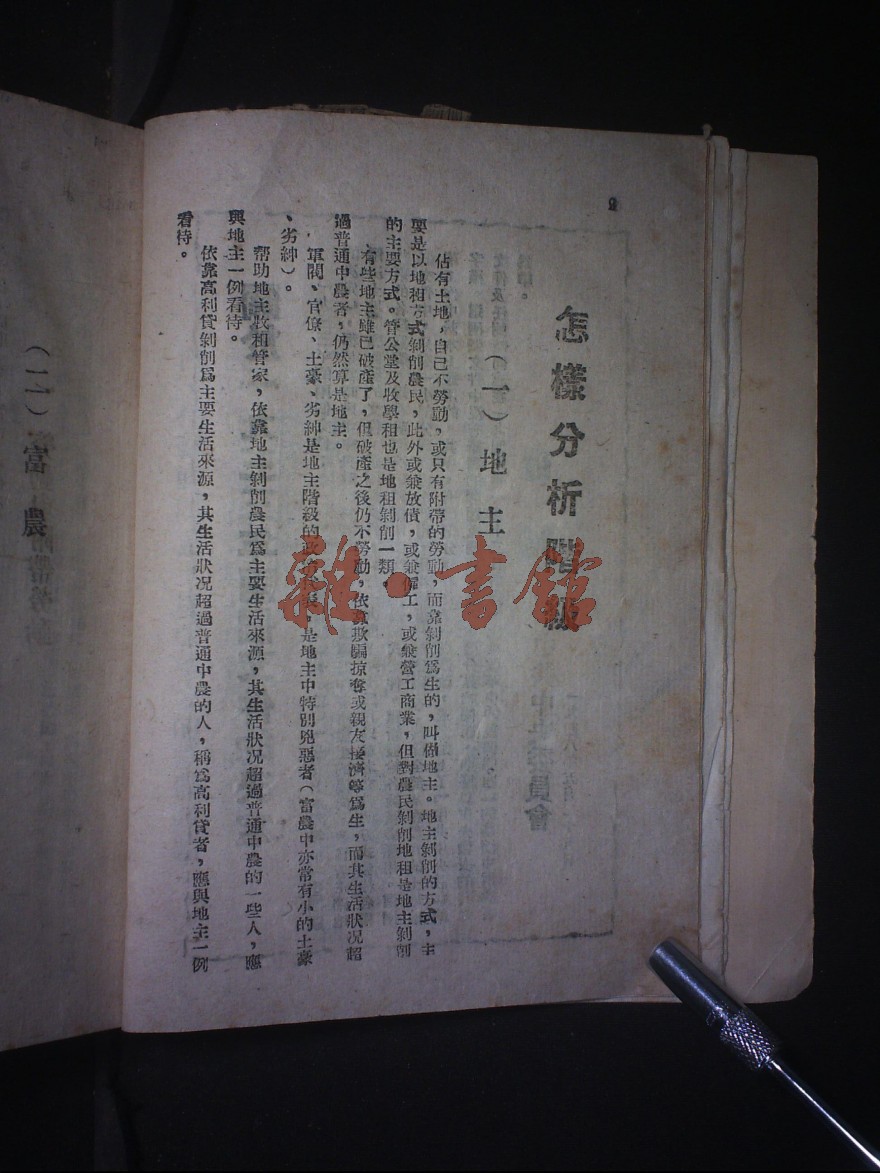 2
怎樣分析階級
(一)地主
佔有土地，自己不勞動，或只有附帶的勞動，而靠剝削爲生的，叫做地主。地主剝削的方式，主
要是以地租方式剝削農民，此外或兼放債，或兼僱工，或兼營工商業，但對農民剝削地租是地主剝削
的主要方式。管公堂及收學租也是地租剝削一類。
有些地主雖已破產了，但破產之後仍不勞動，依靠欺騙掠奪或親友接濟等爲生，而其生活狀况超
過普通中農者，仍然算是地主。
軍閥、官僚、土豪、劣紳是地主階級的政治代表，是地主中特別兇惡者（富農中亦常有小的土豪
、劣紳）。
帮助地主收租管家，依靠地主剝削農民爲主要生活來源，其生活狀况超過普通中農的一些人，應
與地主一例看待。
依靠高利貸剝削爲主要生活來源，其生活狀况超過普通中農的人，稱爲高利貸者，應與地主一例
看待。
(二)富農
雜·書館